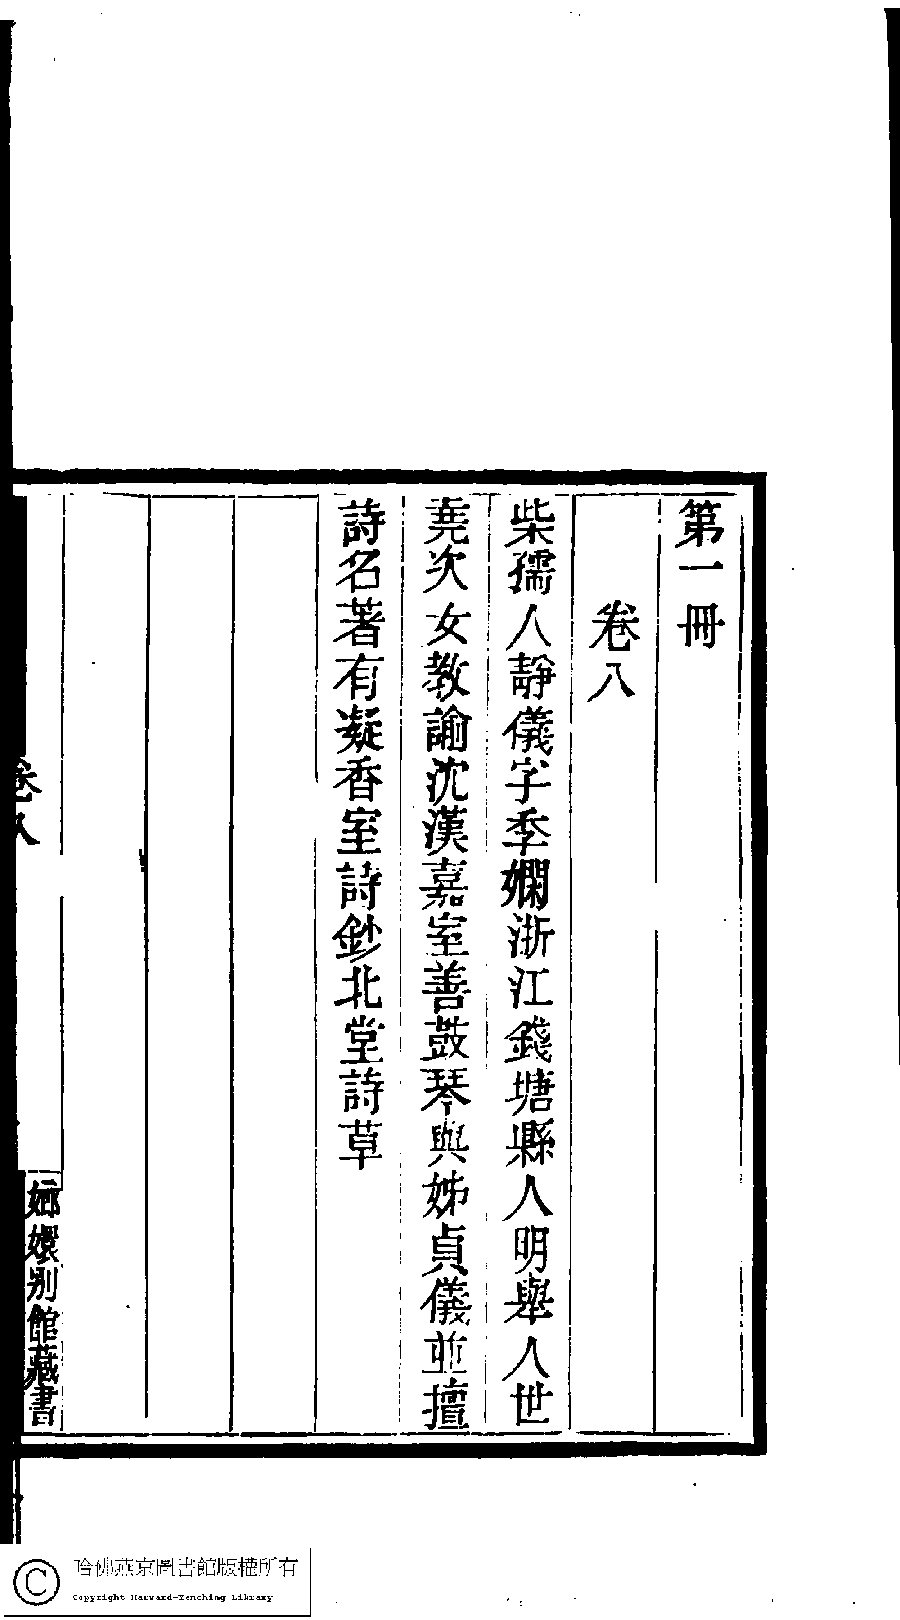 第一冊
卷八
柴孺人靜儀字季嫻浙江錢塘縣人明舉人世
堯次女教諭沈漢嘉室善鼓琴與姊貞儀並擅
詩名著有凝香室詩鈔北堂詩草
卷八
嫏嬛别館藏書
哈佛燕京圖書館版權所有
Copyright Harvard-Yenching Library